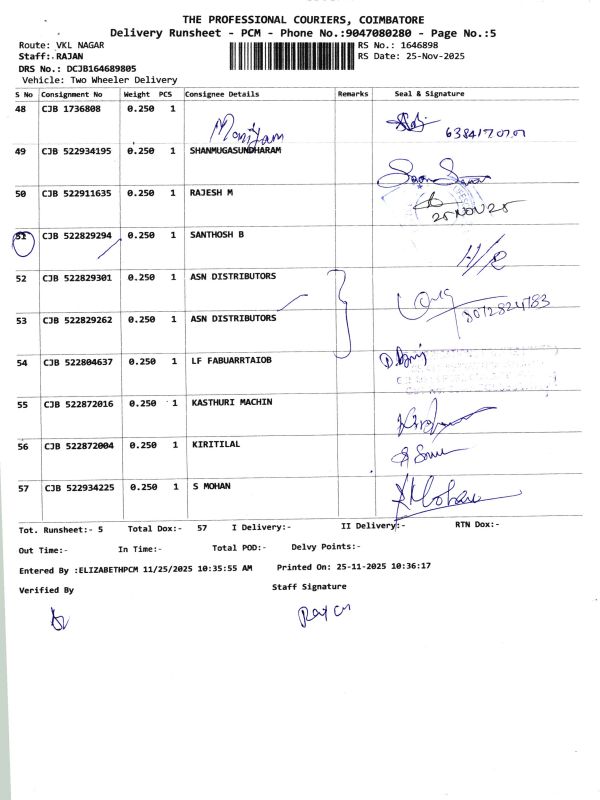 THE PROFESSIONAL COURIERS, COIMBATORE
Delivery Runsheet - PCM - Phone No.:9047080280 - Page No.:5
Route: VKL NAGAR RS No.: 1646898
Staff: RAJAN RS Date: 25-Nov-2025
DRS No.: DCJB164689805
Vehicle: Two Wheeler Delivery
S No Consignment No Weight PCS Consignee Details Remarks Seal & Signature
48 CJB 1736808 0.250 1
49 CJB 522934195 0.250 1 SHANMUGASUNDHARAM
50 CJB 522911635 0.250 1 RAJESH M
25 NOV 25
51 CJB 522829294 0.250 1 SANTHOSH B
H/R
52 CJB 522829301 0.250 1 ASN DISTRIBUTORS
8072824783
53 CJB 522829262 0.250 1 ASN DISTRIBUTORS
54 CJB 522804637 0.250 1 LF FABUARRTAIOB
55 CJB 522872016 0.250 1 KASTHURI MACHIN
56 CJB 522872004 0.250 1 KIRITILAL
57 CJB 522934225 0.250 1 S MOHAN
Tot. Runsheet:- 5 Total Dox:- 57 I Delivery:- II Delivery:- RTN Dox:-
Out Time:- In Time:- Total POD:- Delvy Points:-
Entered By :ELIZABETHPCM 11/25/2025 10:35:55 AM Printed On: 25-11-2025 10:36:17
Verified By Staff Signature